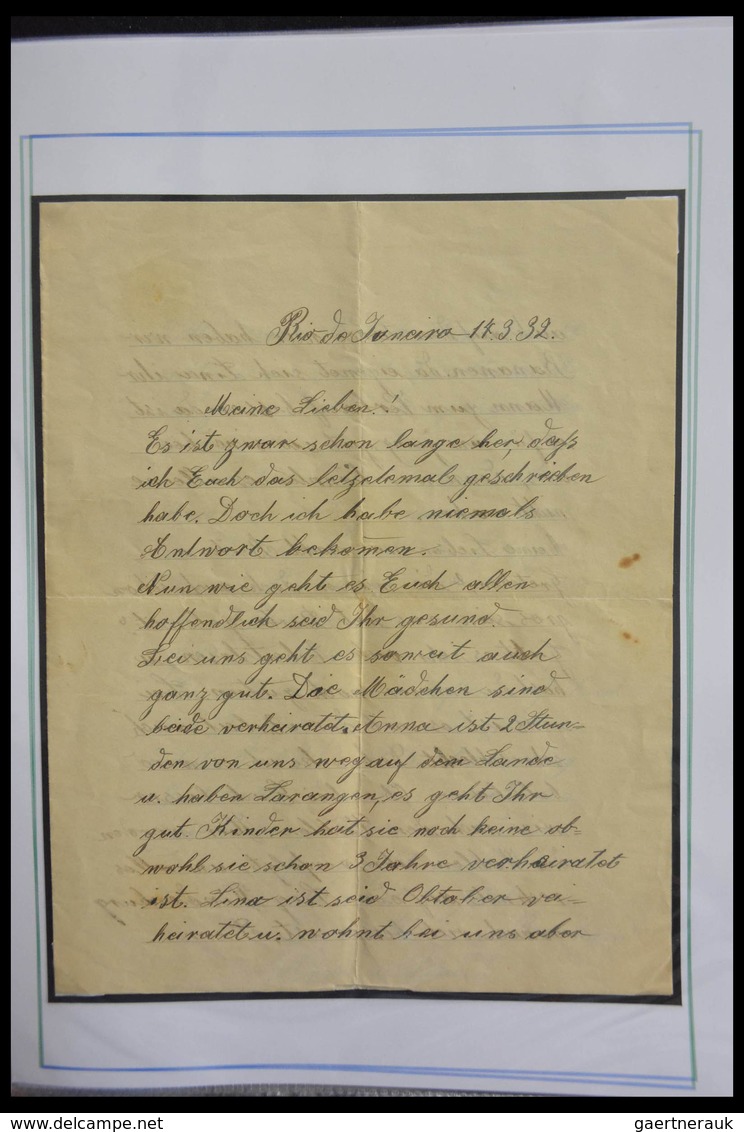 Rio do Janeiro 14.3.32.
Meine Lieben!
Es ist zwar schon lange her, daß
ich Euch das letzetemal geschrieben
habe. Doch ich habe niemals
Antwort bekom̅en.
Nun wie geht es Euch allen
hoffendlich seid Ihr gesund.
Bei uns geht es soweit auch
ganz gut. Die Mädchen sind
beide verheiratet. Anna ist 2 Stun-
den von uns weg auf dem Lande
u. haben Larangen, es geht Ihr
gut. Kinder hat sie noch keine ob-
wohl sie schon 3 Jahre verheiratet
ist. Lina ist seid Obtober ver-
heiratet u. wohnt bei uns aber
gaertnerauk